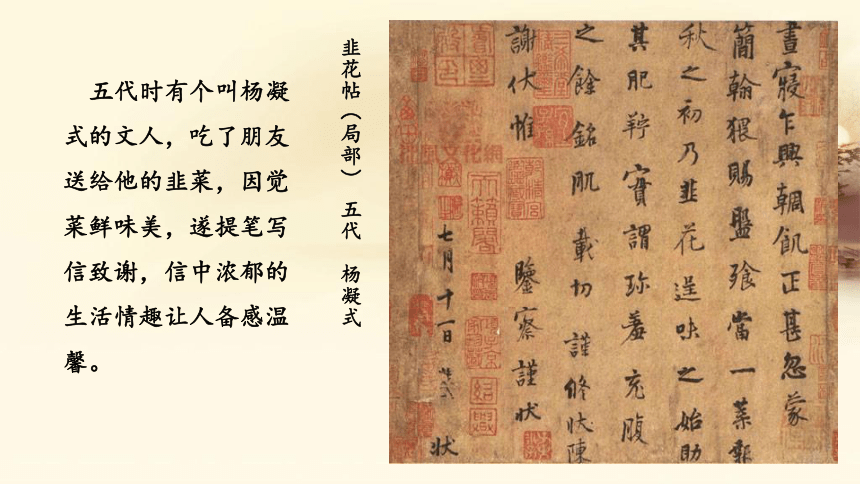 五代时有个叫杨凝
式的文人，吃了朋友
送给他的韭菜，因觉
菜鲜味美，遂提笔写
信致谢，信中浓郁的
生活情趣让人备感温
馨。
韭花帖（局部） 五代 杨凝式
晝寢乍興輖飢正甚忽蒙
簡翰猥賜盤飱當一葉報
秋之初乃韭花逞味之始助
其肥羜實謂珍羞充腹
之餘銘肌載切謹修狀陳
謝伏惟 鑒察謹狀
七月十一日 狀